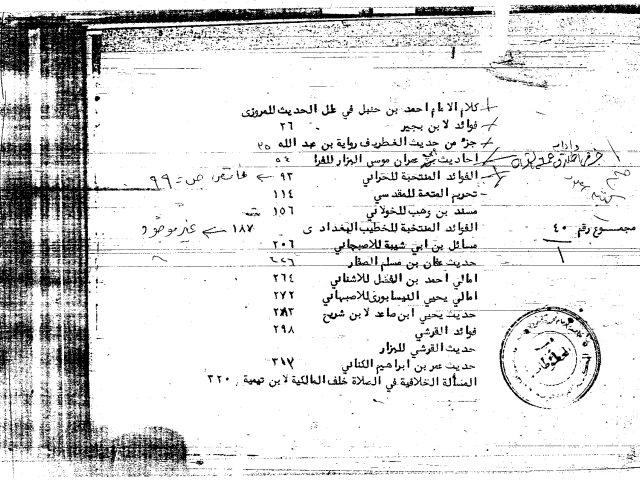 كلام الامام احمد بن حنبل في علل الحديث للمروزى
فوائد لابن بجير ٢٦
جزء من حديث الغطريف رواية بن عبد الله ٣٥
احاديث ابى عمران موسى البزار للفرا ٥٤
الفوائد المنتخبة للحرانى ٩٣ ← ناقص ص ٩٩
تحريم المتعة للمقدسي ١١٤
مسند بن وهب للخولاني ١٥٦
مجموع رقم ٤٠
الفوائد المنتخبة للخطيب البغدادى ١٨٧ ← غير موجود
مسائل بن ابي شيبة للاصبهاني ٢٠٦
حديث عفان بن مسلم الصفار ٢٤٦
امالي احمد بن الفضل للاشناني ٢٦٤
امالي يحيي النيسابورى للاصبهاني ٢٧٢
حديث يحيي ابن صاعد لابن شريح ٢٨٣
فوائد القرشي ٢٩٨
حديث القرشي للبزار
حديث عمر بن ابراهيم الكتاني ٣١٧
المسألة الخلافية في الصلاة خلف المالكية لابن تيمية ٣٢٠